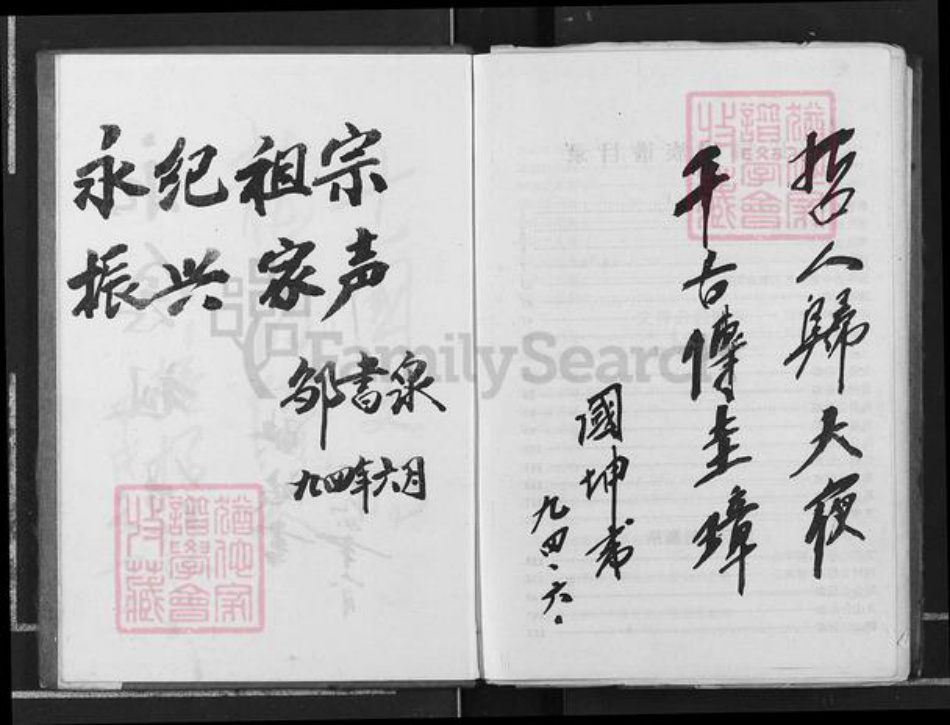 永纪祖宗
振兴家声
邹书泉
九四年六月
哲人歸大夜
千古傳圭璋
國坤书
九四.六.
FamilySearch
猶他家
譜學會
收藏
猶他家
譜學會
收藏